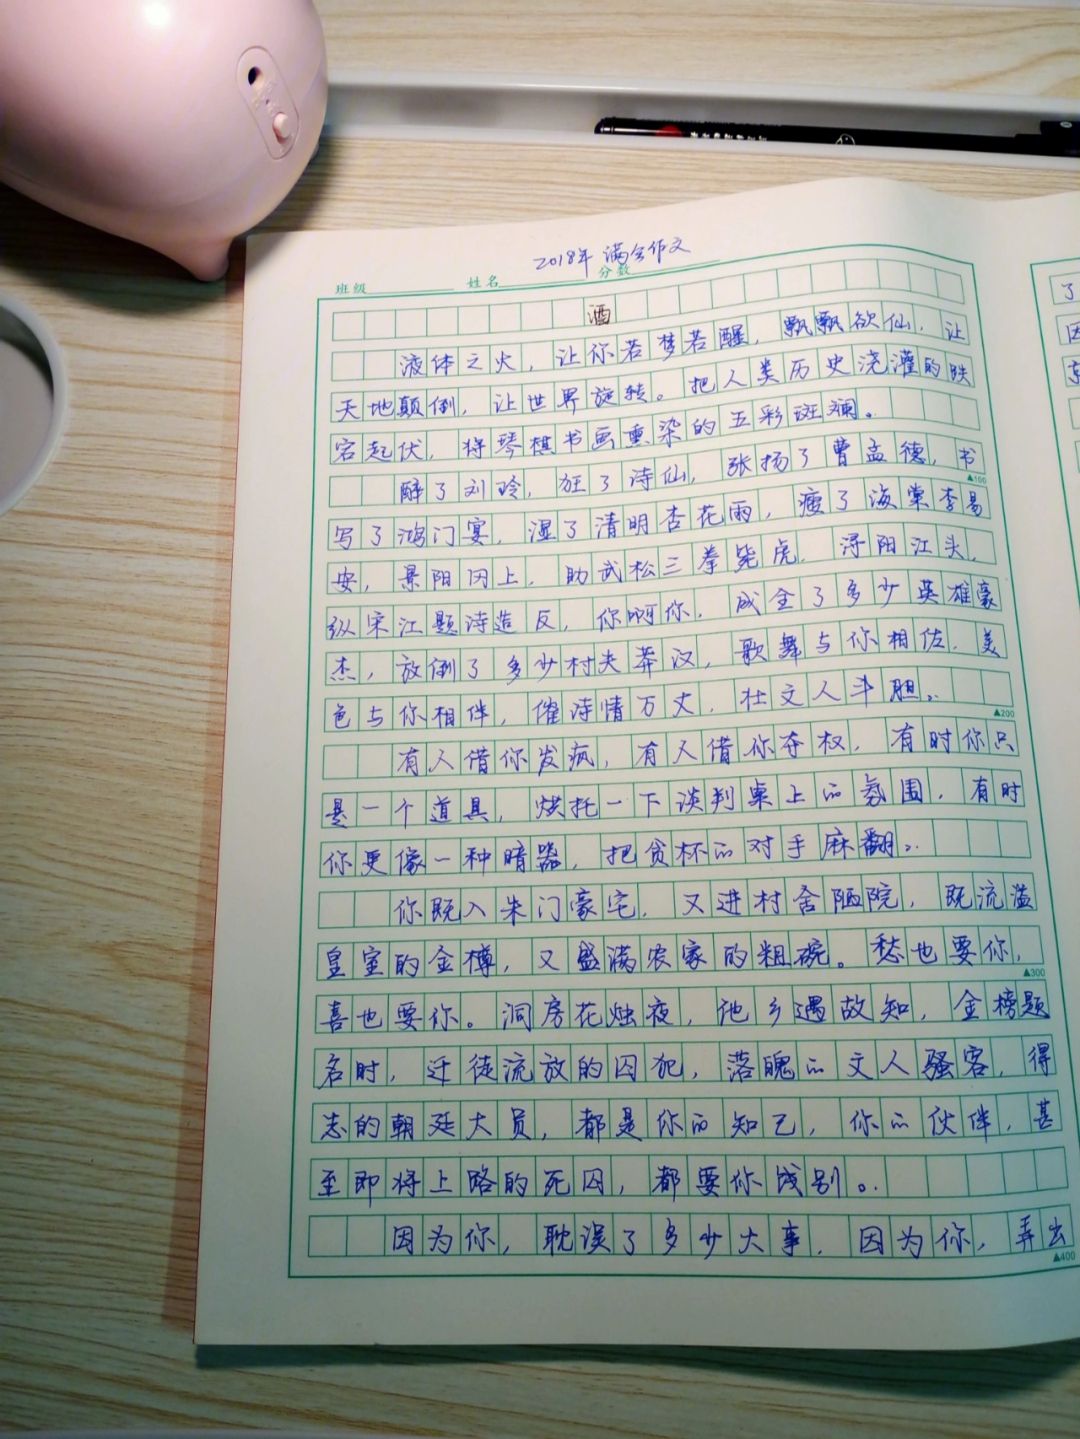 2018年 满分作文
班级 姓名 分数
酒
液体之火，让你若梦若醒，飘飘欲仙，让
天地颠倒，让世界旋转。把人类历史浇灌的跌
宕起伏，将琴棋书画熏染的五彩斑斓。
醉了刘玲，狂了诗仙，张扬了曹孟德，书
▲100
写了鸿门宴，湿了清明杏花雨，瘦了海棠李易
安，景阳冈上，助武松三拳毙虎，浔阳江头，
纵宋江题诗造反，你啊你，成全了多少英雄豪
杰，放倒了多少村夫莽汉，歌舞与你相佐，美
色与你相伴，催诗情万丈，壮文人斗胆。
▲200
有人借你发疯，有人借你夺权，有时你只
是一个道具，烘托一下谈判桌上的氛围，有时
你更像一种暗器，把贪杯的对手麻翻。
你既入朱门豪宅，又进村舍陋院，既流溢
皇室的金樽，又盛满农家的粗碗。愁也要你，
▲300
喜也要你。洞房花烛夜，他乡遇故知，金榜题
名时，迁徒流放的囚犯，落魄的文人骚客，得
志的朝廷大员，都是你的知己，你的伙伴，甚
至即将上路的死囚，都要你饯别。
因为你，耽误了多少大事，因为你，弄出
▲400
了
因